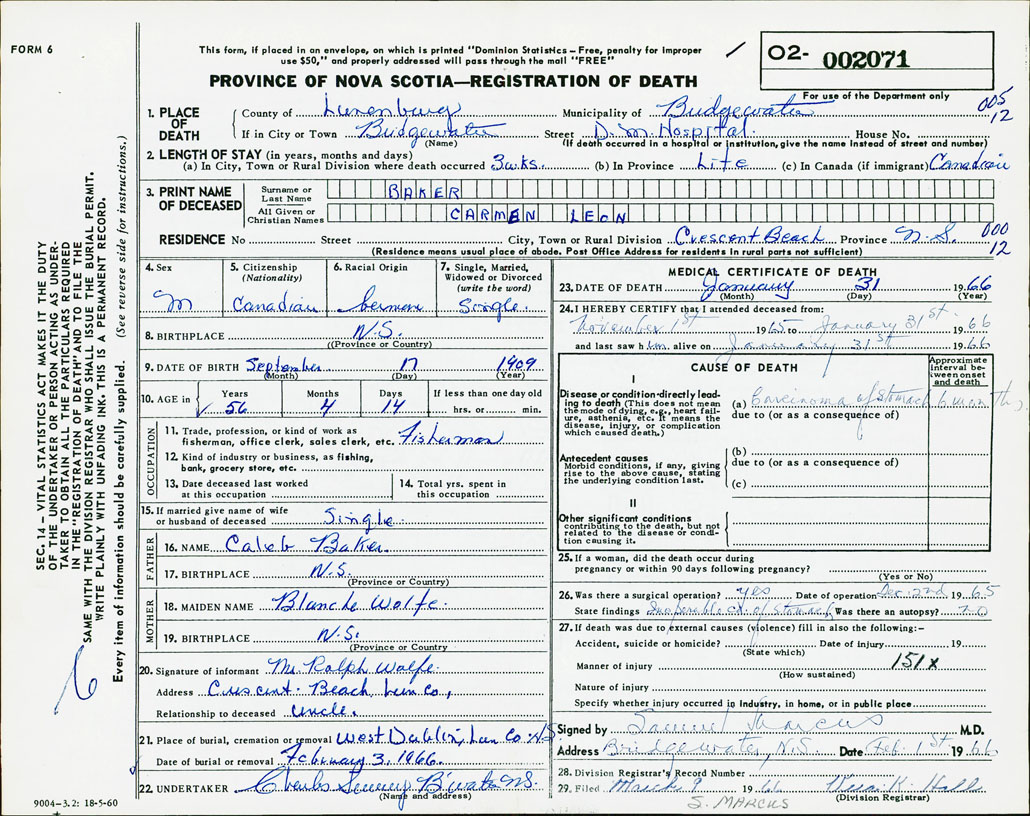 FORM 6
This form, if placed in an envelope, on which is printed "Dominion Statistics—Free, penalty for improper
use $50," and properly addressed will pass through the mail "FREE"
O2- 002071
For use of the Department only
PROVINCE OF NOVA SCOTIA—REGISTRATION OF DEATH
005
12
1. PLACE OF DEATH
County of Lunenburg Municipality of Bridgewater
If in City or Town Bridgewater Street D. M. Hospital. House No.
(Name) (If death occurred in a hospital or institution, give the name instead of street and number)
2. LENGTH OF STAY (in years, months and days)
(a) In City, Town or Rural Division where death occurred 3wks. (b) In Province Life (c) In Canada (if immigrant) Canadian
3. PRINT NAME OF DECEASED
Surname or Last Name BAKER
All Given or Christian Names CARMEN LEON
RESIDENCE No Street City, Town or Rural Division Crescent Beach Province N.S. 000
12
(Residence means usual place of abode. Post Office Address for residents in rural parts not sufficient)
4. Sex M
5. Citizenship (Nationality) Canadian
6. Racial Origin German
7. Single, Married, Widowed or Divorced (write the word) Single.
8. BIRTHPLACE N.S.
(Province or Country)
9. DATE OF BIRTH September 17 1909
(Month) (Day) (Year)
10. AGE in Years 56 Months 4 Days 14 If less than one day old hrs. or min.
OCCUPATION
11. Trade, profession, or kind of work as fisherman, office clerk, sales clerk, etc. Fisherman
12. Kind of industry or business, as fishing, bank, grocery store, etc.
13. Date deceased last worked at this occupation
14. Total yrs. spent in this occupation
15. If married give name of wife or husband of deceased Single.
FATHER
16. NAME Caleb Baker.
17. BIRTHPLACE N.S.
(Province or Country)
MOTHER
18. MAIDEN NAME Blanche Wolfe.
19. BIRTHPLACE N.S.
(Province or Country)
20. Signature of informant Mr. Ralph Wolfe.
Address Crescent Beach, Lun Co,
Relationship to deceased Uncle.
21. Place of burial, cremation or removal West Dublin, Lun Co. NS
Date of burial or removal February 3, 1966.
22. UNDERTAKER Charles B'water NS.
(Name and address)
9004-3.2: 18-5-60
MEDICAL CERTIFICATE OF DEATH
23. DATE OF DEATH January 31 1966
(Month) (Day) (Year)
24. I HEREBY CERTIFY that I attended deceased from:
November 1st 1965 to January 31st 1966
and last saw him alive on January 31st 1966
CAUSE OF DEATH
Approximate interval between onset and death
I
Disease or condition directly leading to death (This does not mean the mode of dying, e.g., heart failure, asthenia, etc. It means the disease, injury, or complication which caused death.)
(a) Carcinoma of Stomach 6 months
due to (or as a consequence of)
Antecedent causes
Morbid conditions, if any, giving rise to the above cause, stating the underlying condition last.
(b)
due to (or as a consequence of)
(c)
II
Other significant conditions
contributing to the death, but not related to the disease or condition causing it.
25. If a woman, did the death occur during pregnancy or within 90 days following pregnancy?
(Yes or No)
26. Was there a surgical operation? yes Date of operation Dec. 22nd 1965
State findings Inoperable ca. of Stomach Was there an autopsy? no
27. If death was due to external causes (violence) fill in also the following:-
Accident, suicide or homicide? Date of injury 19
(State which)
Manner of injury 151x
(How sustained)
Nature of injury
Specify whether injury occurred in industry, in home, or in public place
Signed by Samuel Marcus M.D.
Address Bridgewater, N.S. Date Feb. 1st 1966
28. Division Registrar's Record Number
29. Filed March 9 1966 K. Hall
(Division Registrar)
S. MARCUS
SEC. 14 – VITAL STATISTICS ACT MAKES IT THE DUTY
OF THE UNDERTAKER OR PERSON ACTING AS UNDER-
TAKER TO OBTAIN ALL THE PARTICULARS REQUIRED
IN THE "REGISTRATION OF DEATH" AND TO FILE THE
SAME WITH THE DIVISION REGISTRAR WHO SHALL ISSUE THE BURIAL PERMIT.
WRITE PLAINLY WITH UNFADING INK. THIS IS A PERMANENT RECORD.
Every item of information should be carefully supplied. (See reverse side for instructions.)